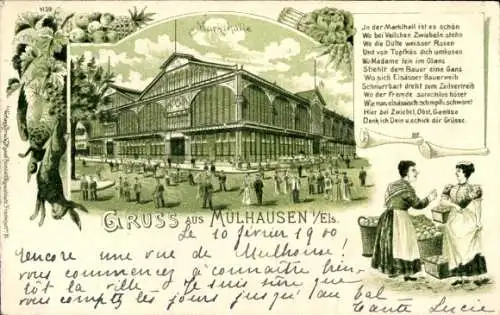 1139
Markthalle
In der Markthall ist es schön
Wo bei Veilchen Zwiebeln stehn
Wo die Düfte weisser Rosen
Und von Topfkäs dich umkosen
Wo Madame fein im Glans
Stiehlt dem Bauer eine Gans
Wo sich Elsässer Bauerweib
Schnurrbart dreht zum Zeitvertreib
Wo der Fremde sprachlos höret
Wie man elsässisch schimpft, schwöret
Hier bei Zwiebel, Obst, Gemüse
Denk ich Dein u. schick dir Grüsse.
GRUSS AUS MÜLHAUSEN i/Els.
Le 10 février 1900
encore une vue de Mulhouse!
vous commencez à connaître bien-
tôt la ville. Je suis sûre que
vous comptez les jours jusqu'au bal
Tante Lucie